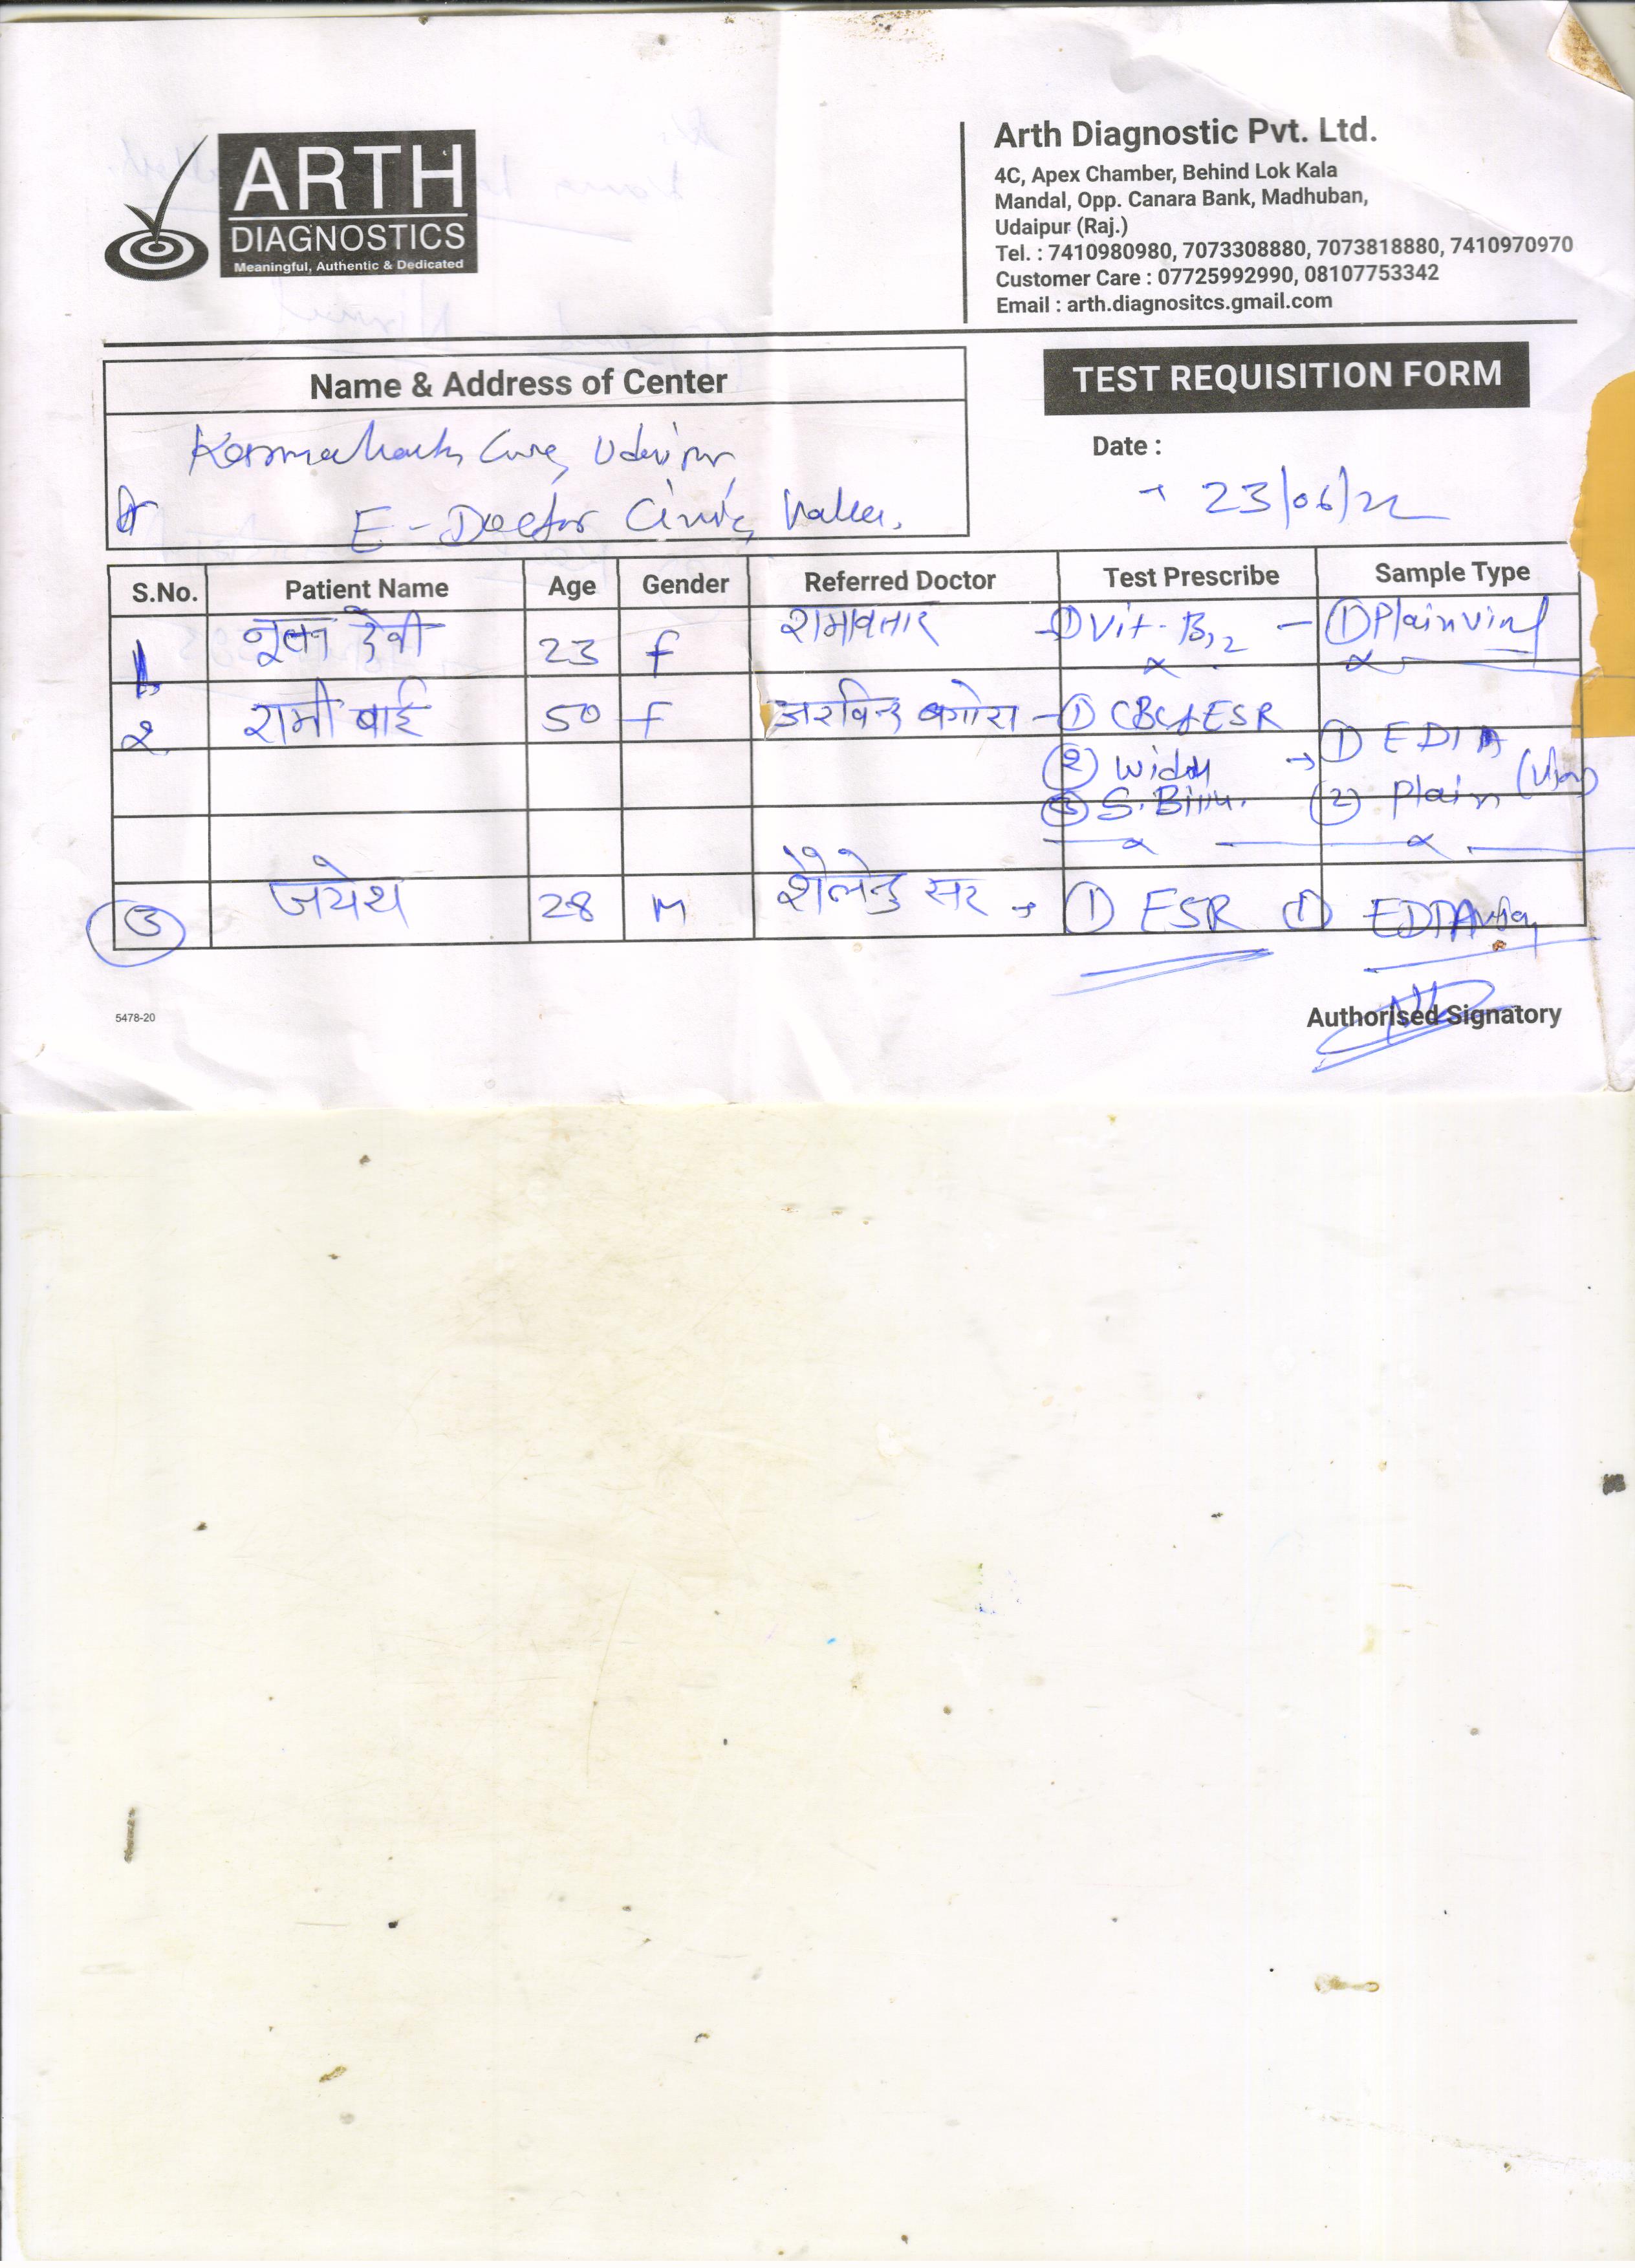 ARTH
DIAGNOSTICS
Meaningful, Authentic & Dedicated
Arth Diagnostic Pvt. Ltd.
4C, Apex Chamber, Behind Lok Kala
Mandal, Opp. Canara Bank, Madhuban,
Udaipur (Raj.)
Tel. : 7410980980, 7073308880, 7073818880, 7410970970
Customer Care : 07725992990, 08107753342
Email : arth.diagnositcs.gmail.com
Name & Address of Center
TEST REQUISITION FORM
Care, Udaipur
E-Doctor Clinic,
Date :
23/06/22
S.No. Patient Name Age Gender Referred Doctor Test Prescribe Sample Type
1 देवी 23 F रामावतार ① Vit-B12 - ① Plain
2. रामी बाई 50 F अरविन्द - ① CBC ESR
② Widal → ① EDTA
③ S. (2) Plain
③ 28 M सर → ① ESR ① EDTA
5478-20
Authorised Signatory